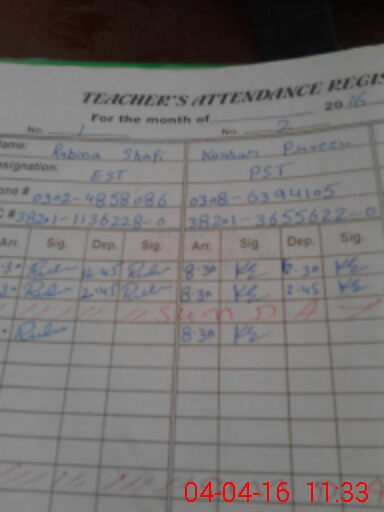 TEACHER'S ATTENDANCE REGIS
For the month of 2016
No. 1 No. 2
Name: Rubina Shafi Kausar Praveen
esignation: EST PST
one # 0302-4858086 0308-6394105
C # 38201-1136228-0 38201-3655622-0
Arr. Sig. Dep. Sig. Arr. Sig. Dep. Sig.
.30 Rub 12.45 Rub 8.30 2.30
30 Rub 2.45 Rub 8.30 2.45
SUNDAY
Rub 8.30
04-04-16 11:33